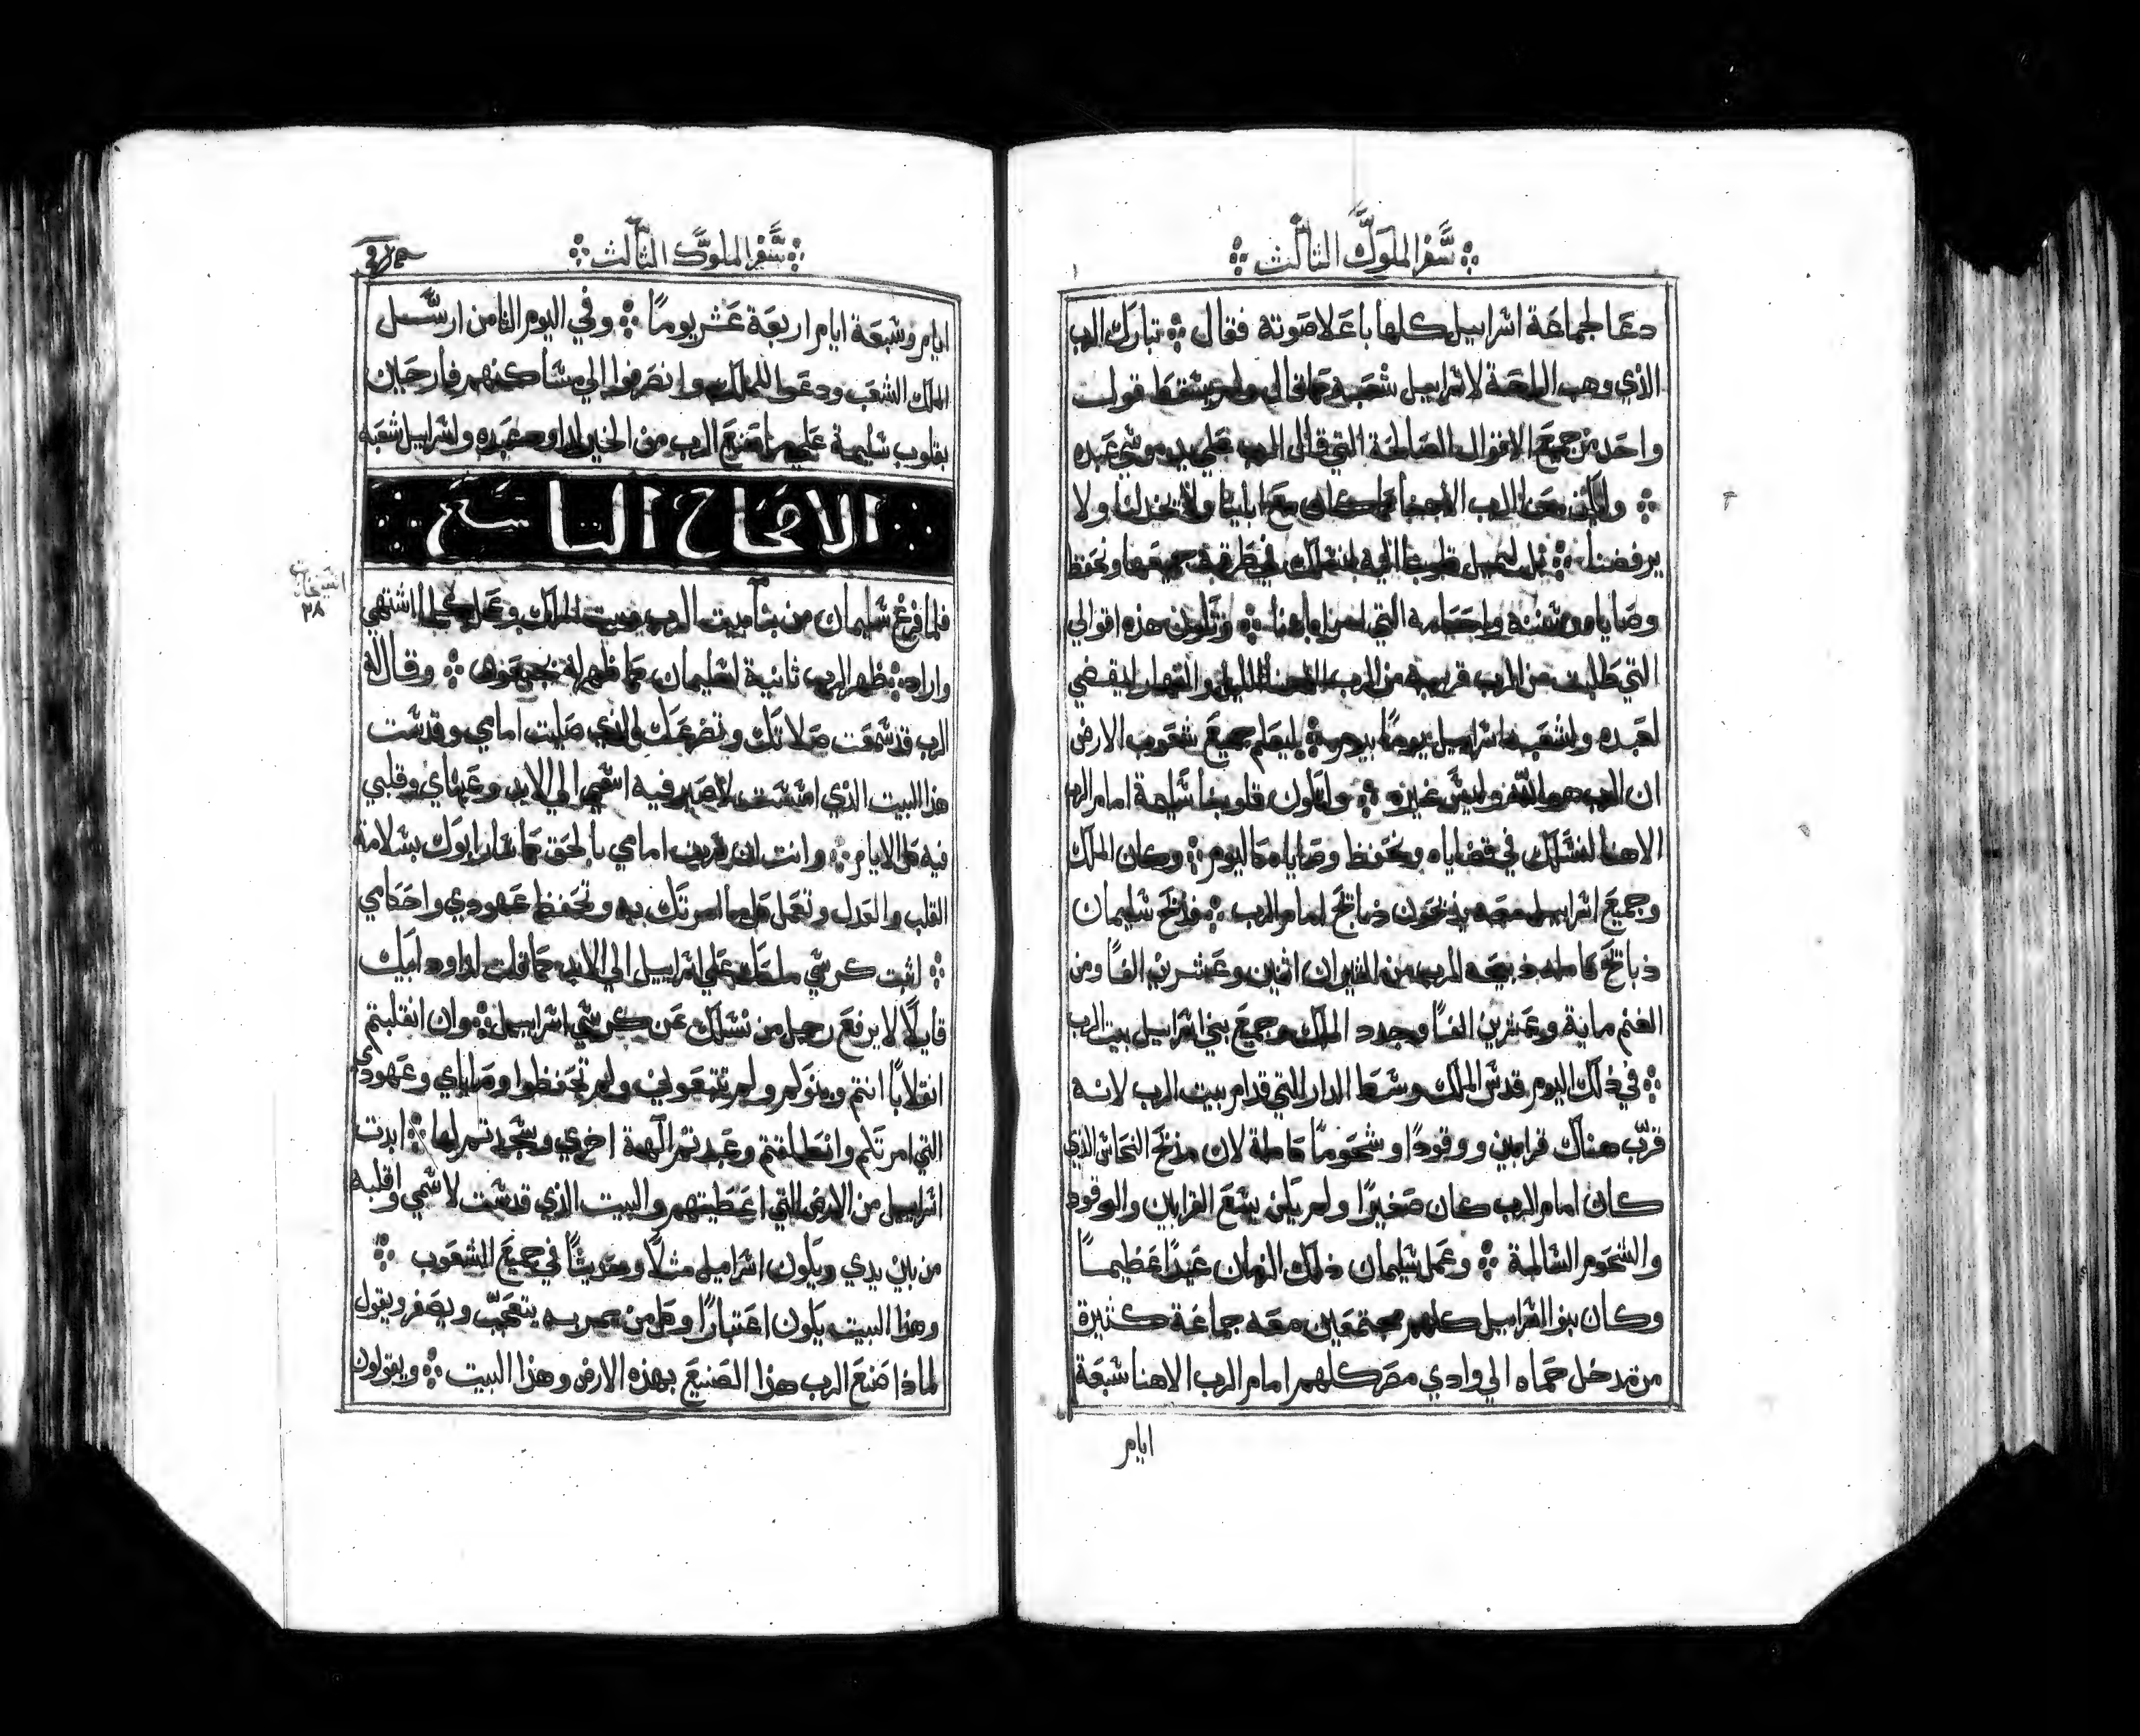 سفر الملوك الثالث
دعا لجماعة اسراييل كلها باعلا صوته فقال تبارك الرب
الذي وهب الراحة لاسراييل شعبه كما قال ولم يسقط قول
واحد من جميع الاقوال الصالحة التي قال الرب علي يد موسي عبده
وليكن معنا الرب الاهنا كما كان مع ابآينا ولا يخذلنا ولا
يرفضنا بل ليميل قلوبنا اليه لنسلك في طرقه جميعها ونحفظ
وصاياه وسننه واحكامه التي امر ابآهنا وتكون هذه اقوالي
التي طلبت من الرب قريبة من الرب الاهنا الليل والنهار ليقضي
لعبده ولشعبه اسراييل يومًا بيوم ليعلم جميع شعوب الارض
ان الرب هو الله وليس غيره ولتكون قلوبنا سليمة امام الرب
الاهنا لنسلك في قضاياه ونحفظ وصاياه كاليوم وكان الملك
وجميع اسراييل معه يذبحون ذبايح امام الرب فذبح سليمان
ذبايح كاملة ذبيحة للرب من الثيران اثنين وعشرين الفًا ومن
الغنم ماية وعشرين الفًا وجدد الملك وجميع بني اسراييل بيت الرب
في ذلك اليوم قدس الملك وسط الدار التي قدام بيت الرب لانه
قرّب هناك قرابين ووقودًا وشحومًا كاملة لان مذبح النحاس الذي
كان امام الرب كان صغيرًا ولم يكن يسع القرابين والوقود
والشحوم السالمة وعمل سليمان ذلك الزمان عيدًا عظيمًا
وكان بنو اسراييل كلهم مجتمعين معه جماعة كثيرة
من مدخل حماه الي وادي مصر كلهم امام الرب الاهنا سبعة
ايام
سفر الملوك الثالث
ايام وسبعة ايام اربعة عشر يومًا وفي اليوم الثامن ارسل
الملك الشعب ودعوا للملك وانصرفوا الي مساكنهم فارحين
بقلوب سليمة علي ما صنع الرب من الخير لداود عبده واسراييل شعبه
الاصحاح التاسع
فلما فرغ سليمان من بنآ بيت الرب وبيت الملك وعمل كلما اشتهي
واراد ظهر الرب ثانية لسليمان كما ظهر له بجبعون وقال له
الرب قد سمعت صلاتك وتضرعك الذي صليت امامي وقدست
هذا البيت الذي اسست لاصير فيه اسمي الي الابد وعيناي وقلبي
فيه كل الايام وانت ان سرت امامي بالحق كما سار ابوك بسلامة
القلب والعدل وتعمل كلما امرتك به وتحفظ عهودي واحكامي
اثبت كرسي ملكك علي اسراييل الي الابد كما قلت لداود ابيك
قايلًا لا يرفع رجل من نسلك عن كرسي اسراييل وان انقلبتم
انقلابًا انتم وبنوكم ولم تتبعوني ولم تحفظوا وصاياي وعهودي
التي امرتكم وانطلقتم وعبدتم آلهة اخري وسجدتم لها ابدت
اسراييل من الارض التي اعطيتهم والبيت الذي قدست لاسمي اقلبه
من بين يدي ويكون اسراييل مثلًا وحديثًا في جميع الشعوب
وهذا البيت يكون اعتبارًا وكل من يمر به يتعجب ويصفر ويقول
لماذا صنع الرب هذا الصنيع بهذه الارض وهذا البيت ويقولون
٢٨